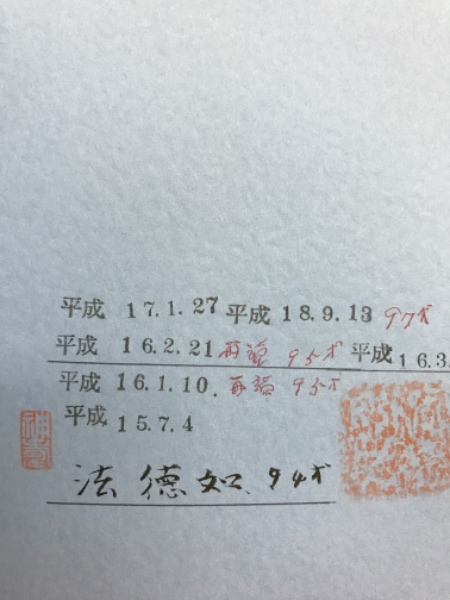 平成 17.1.27 平成 18.9.13 97才
平成 16.2.21 再 95才 平成 16.3.
平成 16.1.10. 再 95才
平成 15.7.4
法徳如 94才